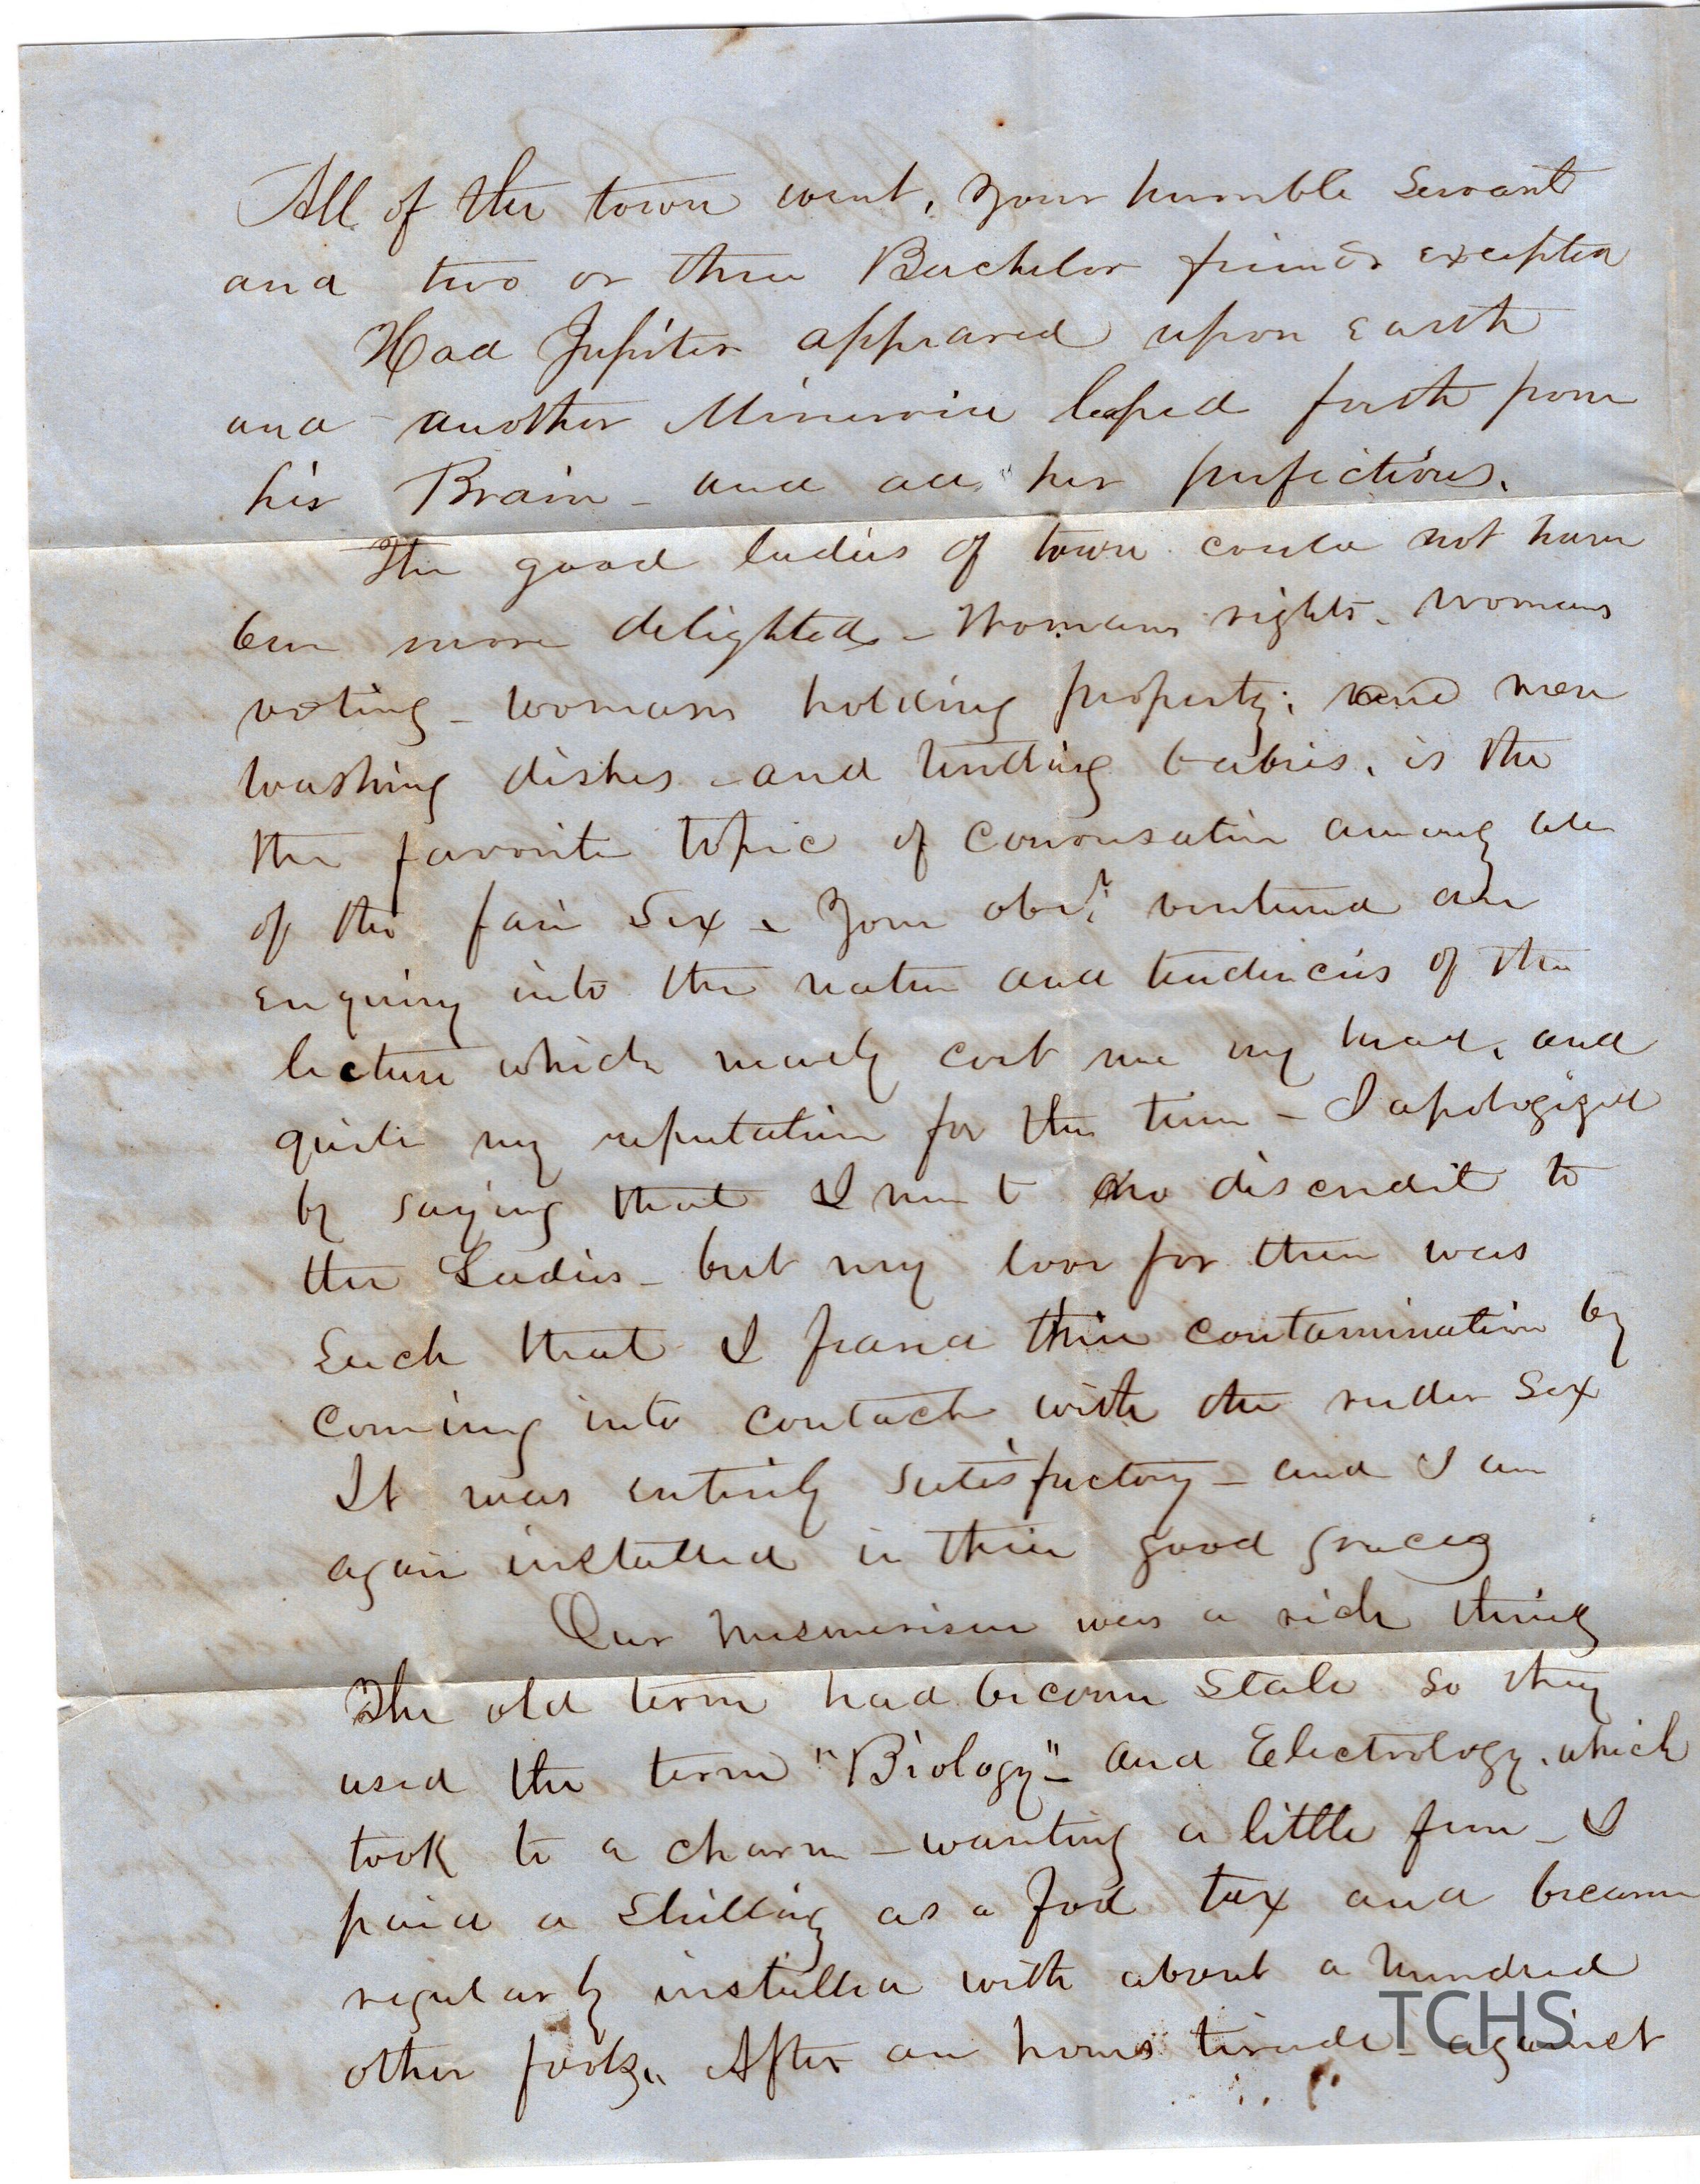 All of the town went, Your humble Servant
and two or three Bachelor friends excepted
Had Jupiter appeared upon earth
and another Minervia leaped forth from
his Brain - and all her perfections.
The good ladies of town could not have
been more delighted - Womans rights - womans
voting - womans holding property; and men
washing dishes and tending babies, is the
the favorite topic of conversation among all
of the fair Sex - Your obdt ventured an
enquiry into the nature and tendencies of the
lecture which nearly cost me my head, and
quite my reputation for the time - I apologized
by saying that I ment no discredit to
the Ladies - but my love for them was
Such that I feared their contamination by
coming into contact with the ruder Sex
It was entirely satisfactory - and I am
again installed in their good graces
Our Mesmerism was a rich thing
The old term had become Stale so they
used the term "Biology" - and Electrology, which
took to a charm - wanting a little fun - I
paid a Shilling as a fool tax and became
regularly installed with about a hundred
other fools. After an hours tirade against
TCHS